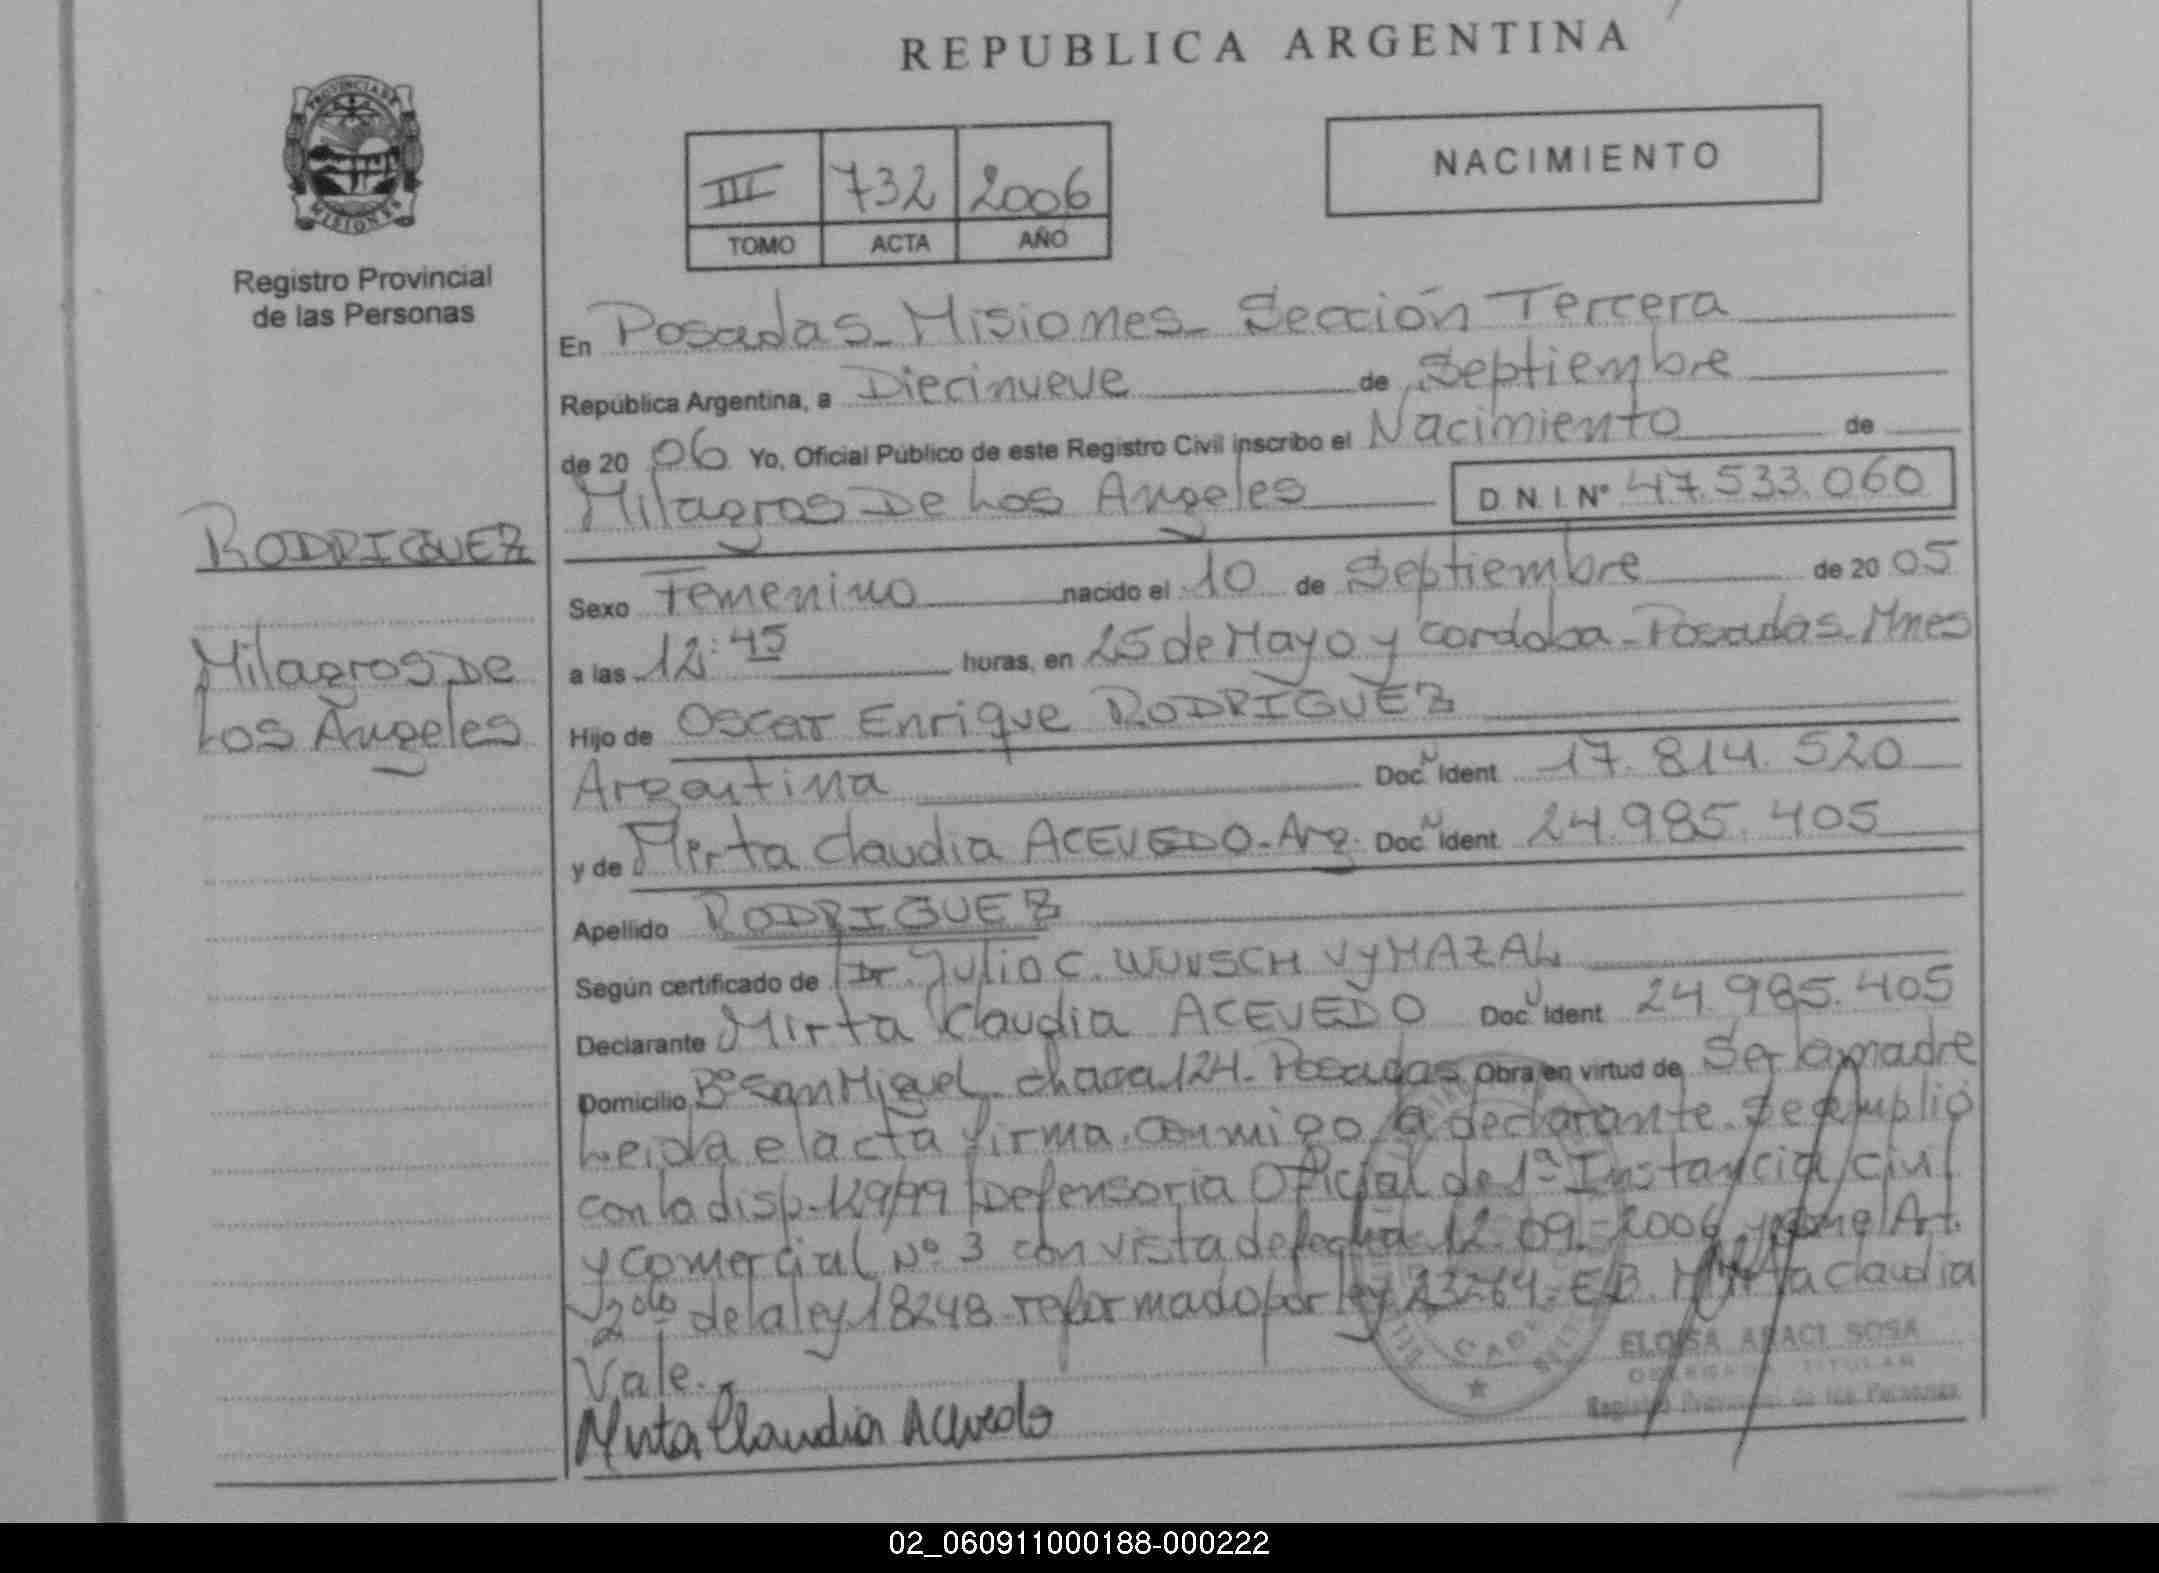 REPUBLICA ARGENTINA
PROVINCIA DE
MISIONES
Registro Provincial
de las Personas
III 732 2006
TOMO ACTA AÑO
NACIMIENTO
En Posadas - Misiones - Sección Tercera
República Argentina, a Diecinueve de Septiembre
de 20 06 Yo, Oficial Público de este Registro Civil inscribo el Nacimiento de
Milagros De Los Angeles D.N.I. Nº 47.533.060
RODRIGUEZ
Milagros De
Los Angeles
Sexo Femenino nacido el 10 de Septiembre de 20 05
a las 12:45 horas, en 25 de Mayo y Cordoba - Posadas - Mnes
Hijo de Oscar Enrique RODRIGUEZ
Argentina Doc. Ident 17.814.520
y de Mirta Claudia ACEVEDO - Arg. Doc. Ident 24.985.405
Apellido RODRIGUEZ
Según certificado de Dr. Julio C. WUNSCH VYHAZAL
Declarante Mirta Claudia ACEVEDO Doc. Ident 24.985.405
Domicilio Bº San Miguel - chacra 124 - Posadas Obra en virtud de Ser la madre
Leida el acta firma conmigo la declarante. Se cumplió
con la disp. 129/99 Defensoria Oficial de 1ª Instancia Civil
y Comercial Nº 3 con vista de fecha 12-09-2006 y con el Art.
2do de la ley 18248 reformado por ley 23264. E/B. Mirta Claudia
Vale.
Mirta Claudia Acevedo
ELOISA ARACI SOSA
DELEGADA TITULAR
Registro Provincial de las Personas
02_060911000188-000222